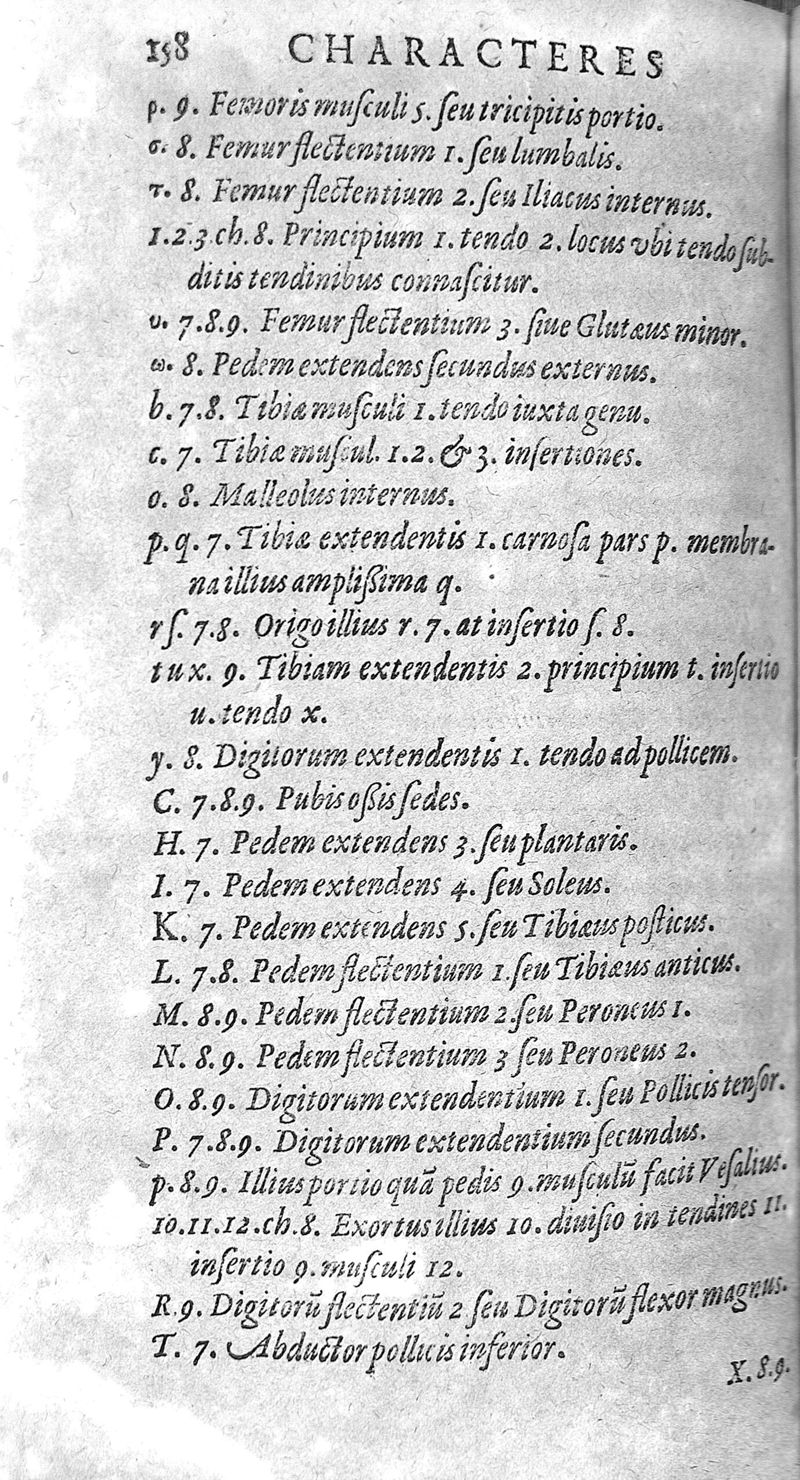 158 CHARACTERES
ρ. 9. Femoris muſculi 5. ſeu tricipitis portio.
σ. 8. Femur flectentium 1. ſeu lumbalis.
τ. 8. Femur flectentium 2. ſeu Iliacus internus.
1.2.3.ch.8. Principium 1. tendo 2. locus vbi tendo ſub-
ditis tendinibus connaſcitur.
υ. 7.8.9. Femur flectentium 3. ſiue Glutæus minor.
ω. 8. Pedem extendens ſecundus externus.
b. 7.8. Tibiæ muſculi 1. tendo iuxta genu.
c. 7. Tibiæ muſcul. 1.2. & 3. inſertiones.
o. 8. Malleolus internus.
p.q.7. Tibiæ extendentis 1. carnoſa pars p. membra-
na illius ampliſſima q.
rſ. 7.8. Origo illius r. 7. at inſertio ſ. 8.
t u x. 9. Tibiam extendentis 2. principium t. inſertio
u. tendo x.
y. 8. Digitorum extendentis 1. tendo ad pollicem.
C. 7.8.9. Pubis oſſis ſedes.
H. 7. Pedem extendens 3. ſeu plantaris.
I. 7. Pedem extendens 4. ſeu Soleus.
K. 7. Pedem extendens 5. ſeu Tibiæus poſticus.
L. 7.8. Pedem flectentium 1. ſeu Tibiæus anticus.
M. 8.9. Pedem flectentium 2. ſeu Peroneus 1.
N. 8.9. Pedem flectentium 3 ſeu Peroneus 2.
O. 8.9. Digitorum extendentium 1. ſeu Pollicis tenſor.
P. 7.8.9. Digitorum extendentium ſecundus.
p. 8.9. Illius portio quã pedis 9. muſculũ facit Veſalius.
10.11.12.ch.8. Exortus illius 10. diuiſio in tendines 11.
inſertio 9. muſculi 12.
R.9. Digitorũ flectentiũ 2 ſeu Digitorũ flexor magnus.
T. 7. Abductor pollicis inferior.
X. 8.9.